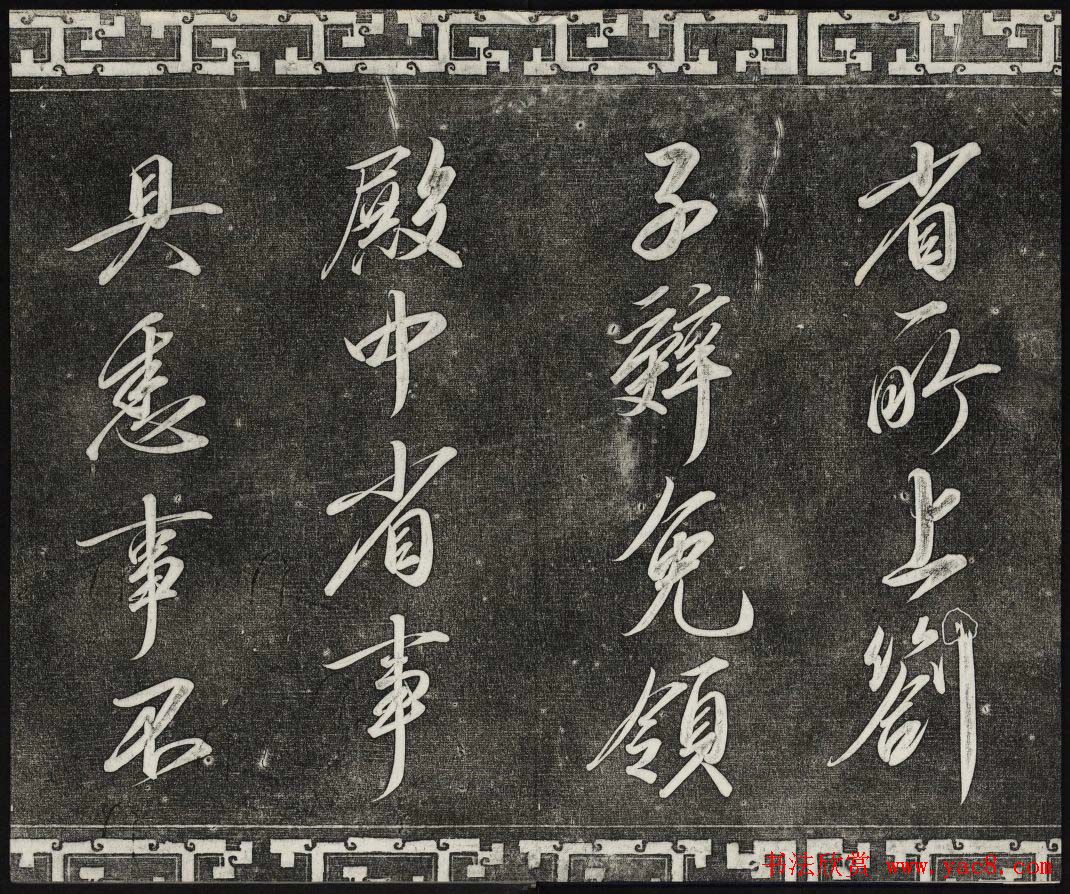 省所上劄
子辤免領
殿中省事
具悉事不
书法欣赏 www.yac8.com